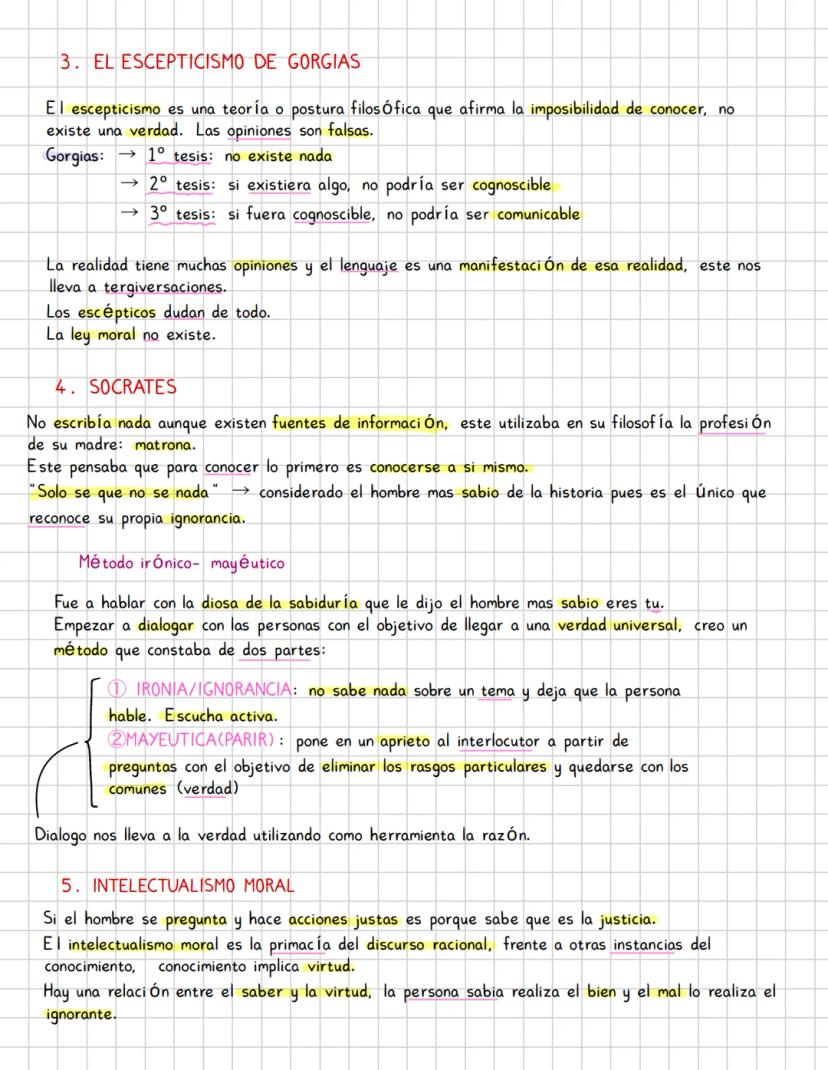 3. EL ESCEPTICISMO DE GORGIAS
El escepticismo es una teoría o postura filosófica que afirma la imposibilidad de conocer, no
existe una verdad. Las opiniones son falsas.
Gorgias: → 1º tesis: no existe nada
→ 2º tesis: si existiera algo, no podría ser cognoscible
→ 3º tesis: si fuera cognoscible, no podría ser comunicable
La realidad tiene muchas opiniones y el lenguaje es una manifestación de esa realidad, este nos
lleva a tergiversaciones.
Los escépticos dudan de todo.
La ley moral no existe.
4. SOCRATES
No escribía nada aunque existen fuentes de información, este utilizaba en su filosofía la profesión
de su madre: matrona.
Este pensaba que para conocer lo primero es conocerse a si mismo.
"Solo se que no se nada" → considerado el hombre mas sabio de la historia pues es el único que
reconoce su propia ignorancia.
Método irónico- mayéutico
Fue a hablar con la diosa de la sabiduría que le dijo el hombre mas sabio eres tu.
Empezar a dialogar con las personas con el objetivo de llegar a una verdad universal, creo un
método que constaba de dos partes:
① IRONIA/IGNORANCIA: no sabe nada sobre un tema y deja que la persona
hable. Escucha activa.
②MAYEUTICA(PARIR): pone en un aprieto al interlocutor a partir de
preguntas con el objetivo de eliminar los rasgos particulares y quedarse con los
comunes (verdad)
Dialogo nos lleva a la verdad utilizando como herramienta la razón.
5. INTELECTUALISMO MORAL
Si el hombre se pregunta y hace acciones justas es porque sabe que es la justicia.
El intelectualismo moral es la primacía del discurso racional, frente a otras instancias del
conocimiento, conocimiento implica virtud.
Hay una relación entre el saber y la virtud, la persona sabia realiza el bien y el mal lo realiza el
ignorante.